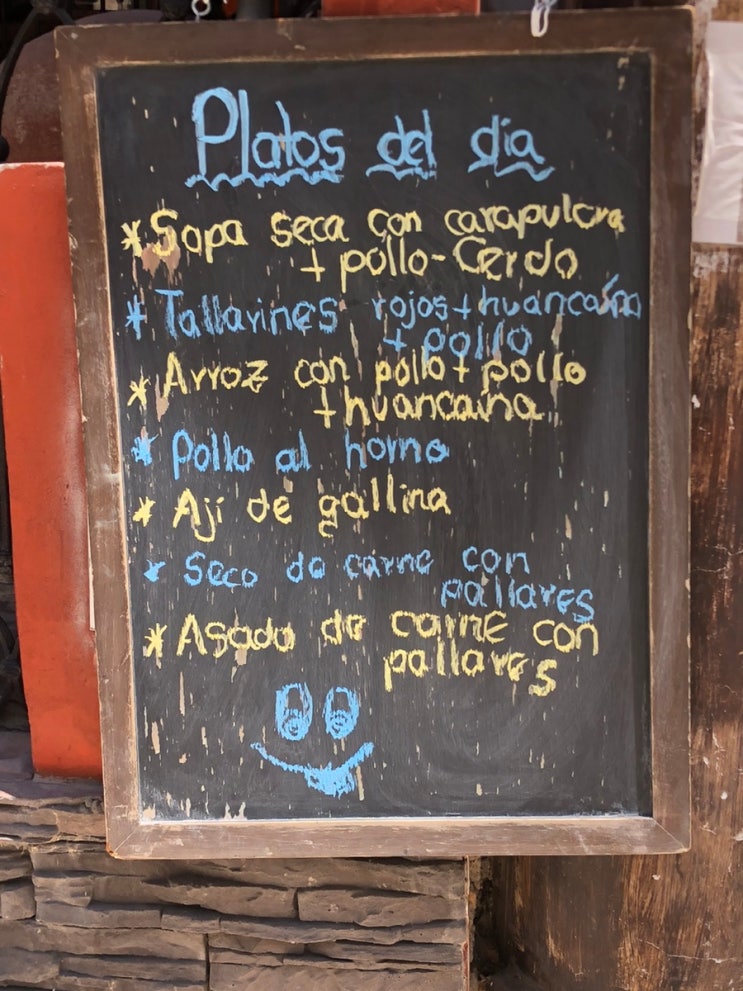 Platos del día
* Sopa seca con carapulcra
+ pollo-Cerdo
* Tallarines rojos + huancaína
+ pollo
* Arroz con pollo + pollo
+ huancaína
* Pollo al horno
* Ají de gallina
* Seco de carne con
pallares
* Asado de carne con
pallares